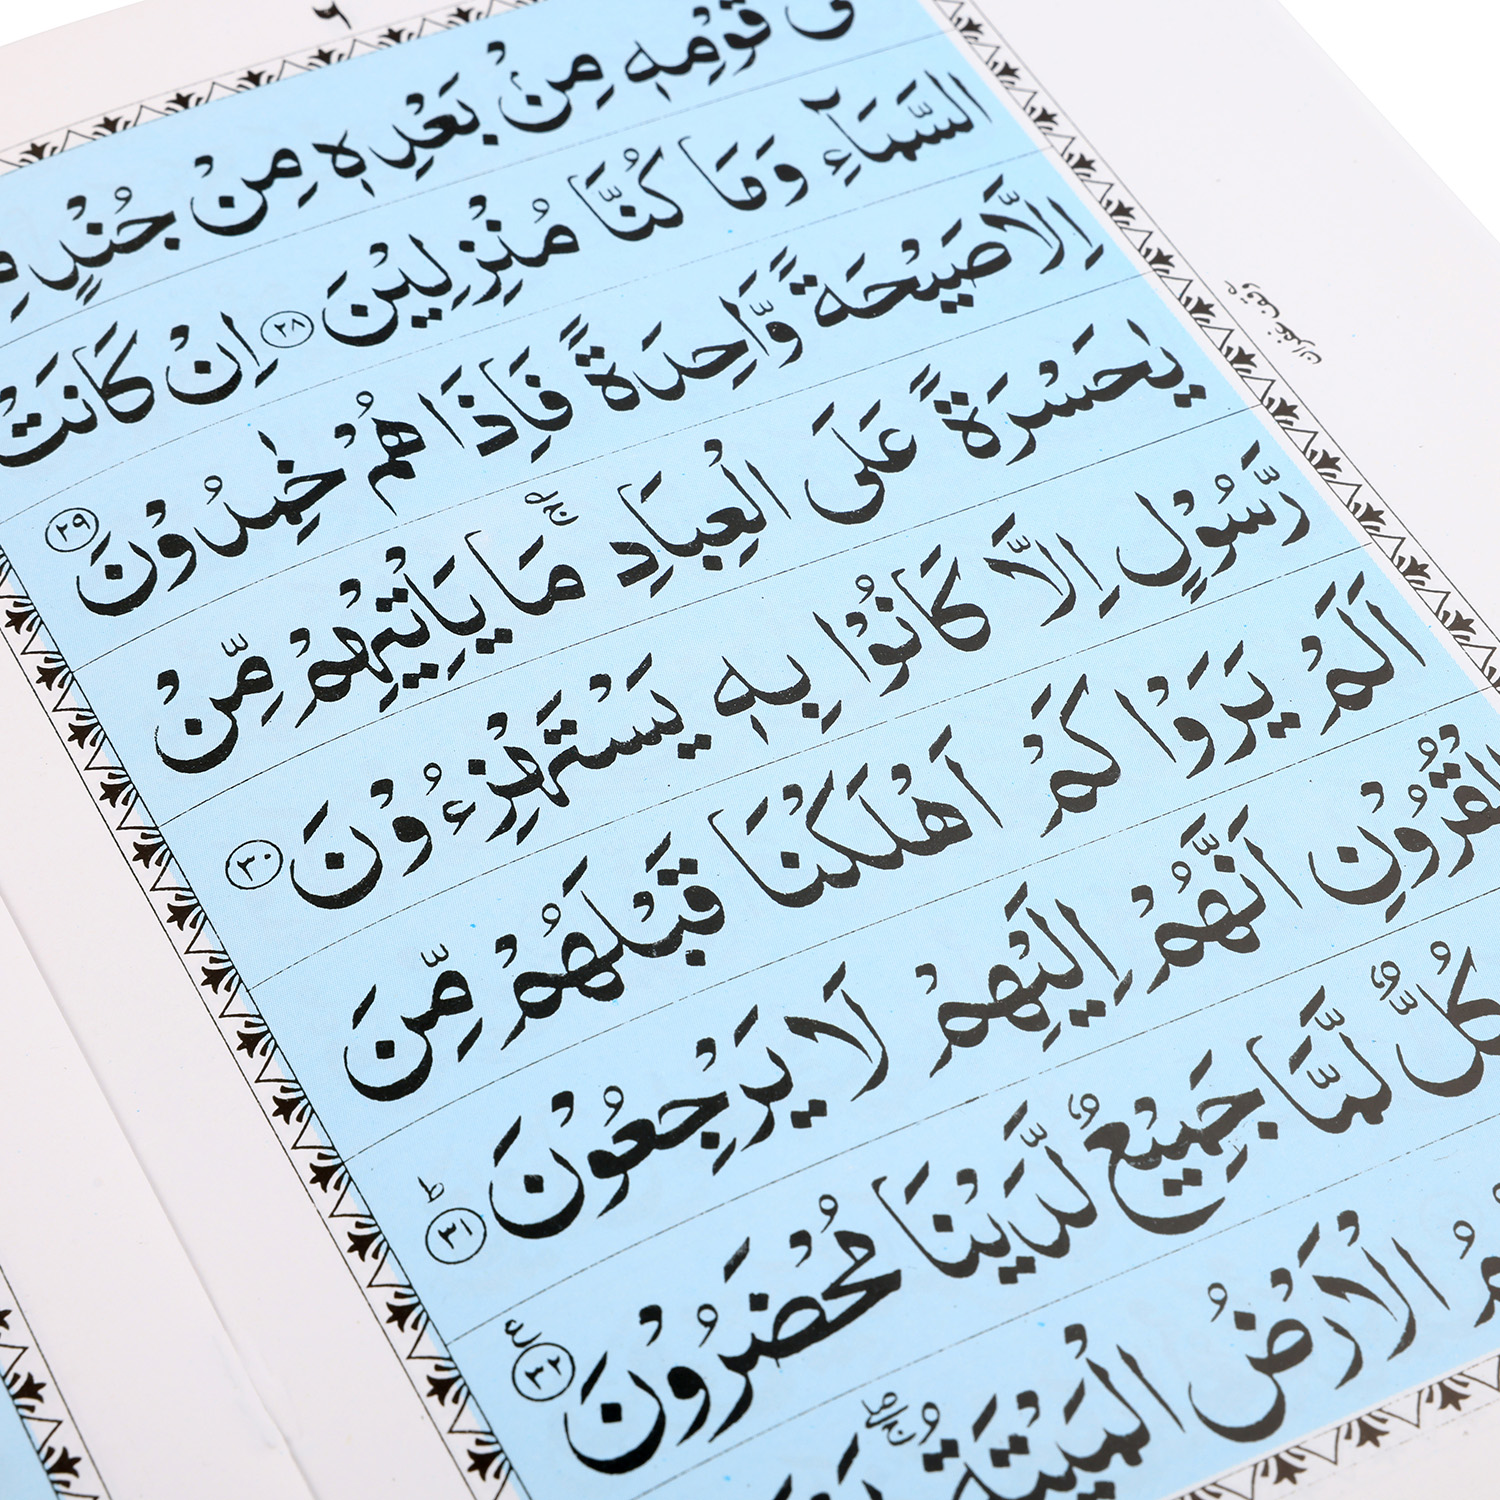 ٦
قَوْمِهٖ مِنْۢ بَعْدِهٖ مِنْ جُنْدٍ
السَّمَآءِ وَمَا كُنَّا مُنْزِلِيْنَ ﴿۲۸﴾ اِنْ كَانَتْ
اِلَّا صَيْحَةً وَّاحِدَةً فَاِذَا هُمْ خٰمِدُوْنَ ﴿۲۹﴾
يٰحَسْرَةً عَلَى الْعِبَادِ ۚ مَا يَاْتِيْهِمْ مِّنْ
رَّسُوْلٍ اِلَّا كَانُوْا بِهٖ يَسْتَهْزِءُوْنَ ﴿۳۰﴾
اَلَمْ يَرَوْا كَمْ اَهْلَكْنَا قَبْلَهُمْ مِّنَ
الْقُرُوْنِ اَنَّهُمْ اِلَيْهِمْ لَا يَرْجِعُوْنَ ﴿۳۱﴾ ط
كُلٌّ لَّمَّا جَمِيْعٌ لَّدَيْنَا مُحْضَرُوْنَ ﴿۳۲﴾
الْاَرْضُ الْمَيْتَةُ
وقف غفران